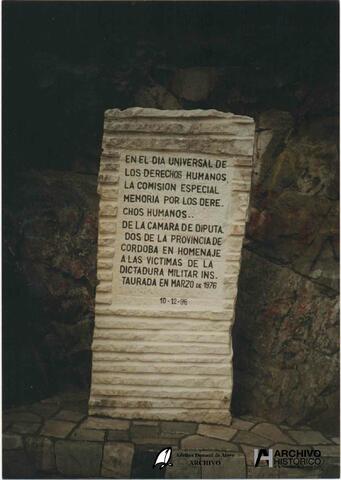 EN EL DIA UNIVERSAL DE
LOS DERECHOS HUMANOS
LA COMISION ESPECIAL
MEMORIA POR LOS DERE.
CHOS HUMANOS..
DE LA CAMARA DE DIPUTA.
DOS DE LA PROVINCIA DE
CORDOBA EN HOMENAJE
A LAS VICTIMAS DE LA
DICTADURA MILITAR INS.
TAURADA EN MARZO DE 1976
10-12-96
ARCHIVO
ARCHIVO
HISTÓRICO